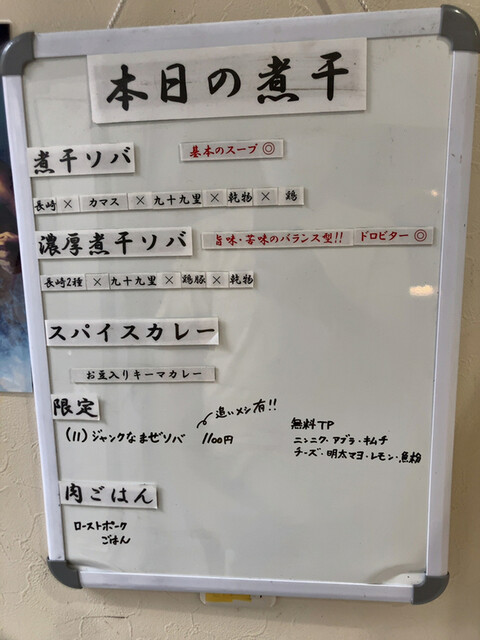 本日の煮干
煮干ソバ 基本のスープ◎
長崎×カマス×九十九里×乾物×鶏
濃厚煮干ソバ 旨味・苦味のバランス型!! ドロビター◎
長崎2種×九十九里×鶏豚×乾物
スパイスカレー
お豆入りキーマカレー
限定
追いメシ有!!
(11)ジャンクなまぜソバ 1100円
無料TP
ニンニク・アブラ・キムチ
チーズ・明太マヨ・レモン・魚粉
肉ごはん
ローストポーク
ごはん